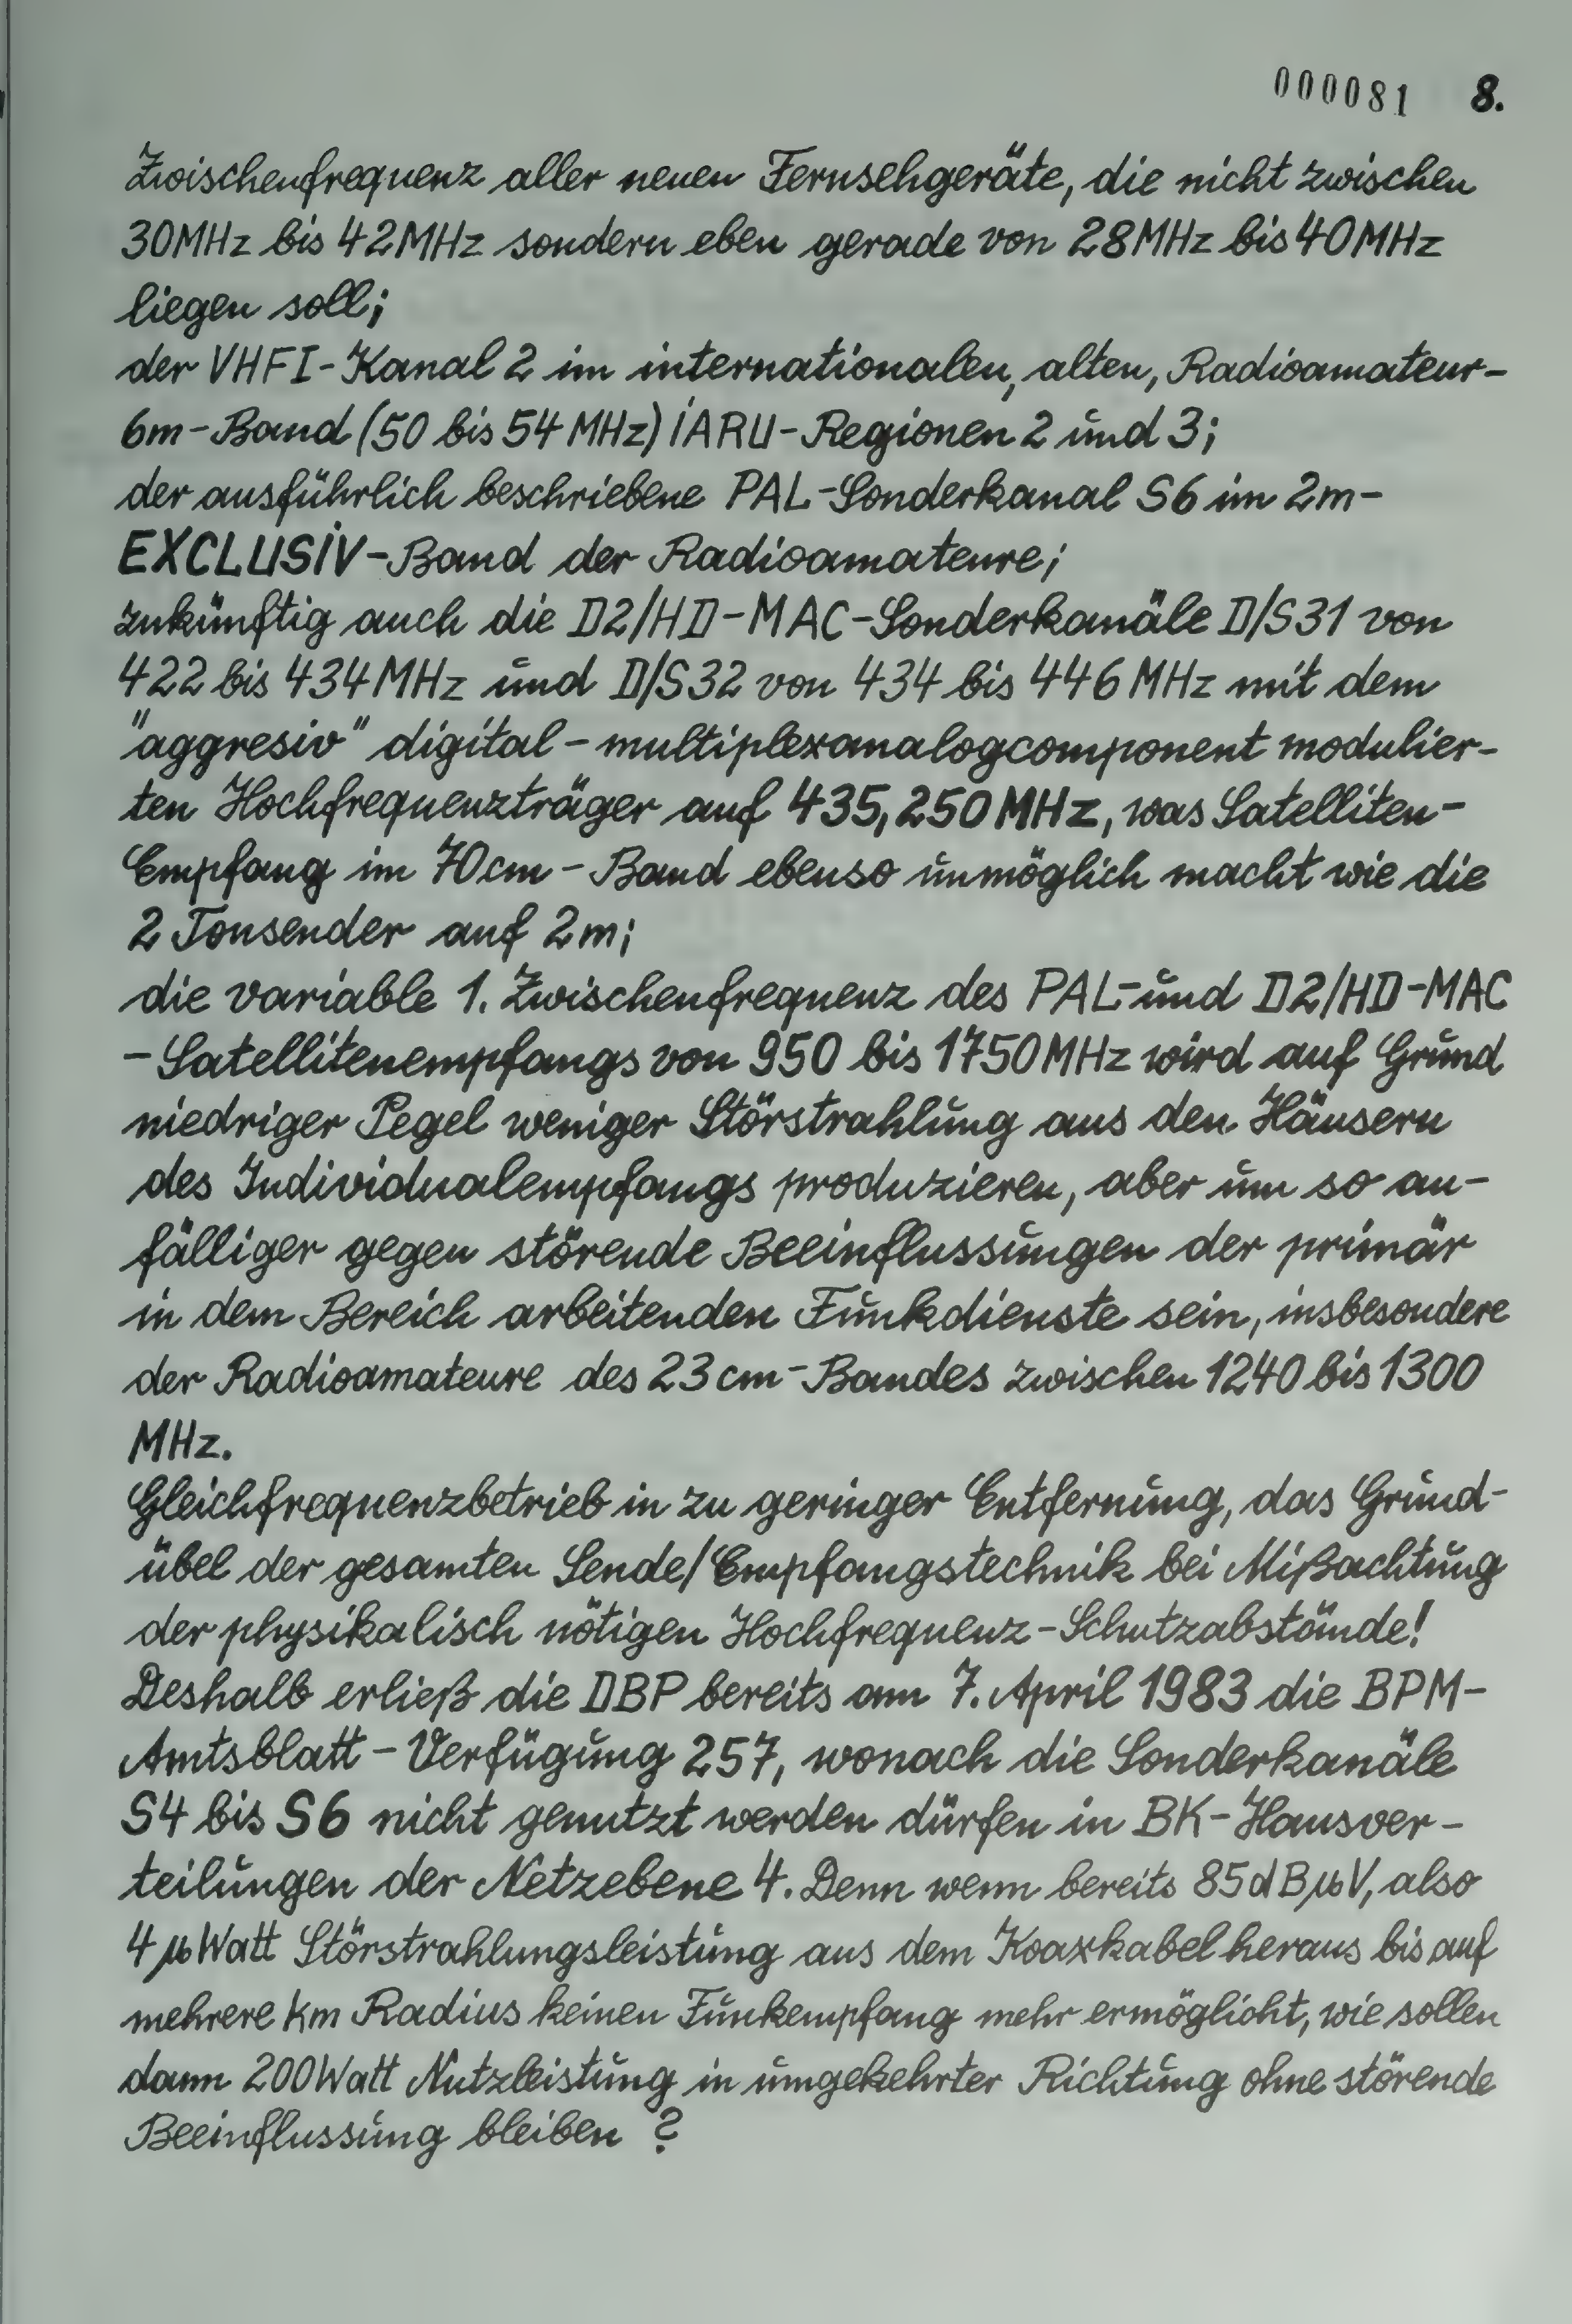 000081 8.
Zwischenfrequenz aller neuen Fernsehgeräte, die nicht zwischen
30MHz bis 42MHz sondern eben gerade von 28MHz bis 40MHz
liegen soll;
der VHF I-Kanal 2 im internationalen, alten, Radioamateur-
6m-Band (50 bis 54 MHz) IARU-Regionen 2 und 3;
der ausführlich beschriebene PAL-Sonderkanal S6 im 2m-
EXCLUSIV-Band der Radioamateure;
zukünftig auch die D2/HD-MAC-Sonderkanäle D/S31 von
422 bis 434 MHz und D/S32 von 434 bis 446 MHz mit dem
"aggresiv" digital-multiplexanalogcomponent modulier-
ten Hochfrequenzträger auf 435,250 MHz, was Satelliten-
Empfang im 70cm-Band ebenso unmöglich macht wie die
2 Tonsender auf 2m;
die variable 1. Zwischenfrequenz des PAL-und D2/HD-MAC
-Satellitenempfangs von 950 bis 1750MHz wird auf Grund
niedriger Pegel weniger Störstrahlung aus den Häusern
des Individualempfangs produzieren, aber um so an-
fälliger gegen störende Beeinflussungen der primär
in dem Bereich arbeitenden Funkdienste sein, insbesondere
der Radioamateure des 23cm-Bandes zwischen 1240 bis 1300
MHz.
Gleichfrequenzbetrieb in zu geringer Entfernung, das Grund-
übel der gesamten Sende/Empfangstechnik bei Mißachtung
der physikalisch nötigen Hochfrequenz-Schutzabstände!
Deshalb erließ die DBP bereits am 7. April 1983 die BPM-
Amtsblatt-Verfügung 257, wonach die Sonderkanäle
S4 bis S6 nicht genutzt werden dürfen in BK-Hausver-
teilungen der Netzebene 4. Denn wenn bereits 85dBµV, also
4 µWatt Störstrahlungsleistung aus dem Koaxkabel heraus bis auf
mehrere km Radius keinen Funkempfang mehr ermöglicht, wie sollen
dann 200Watt Nutzleistung in umgekehrter Richtung ohne störende
Beeinflussung bleiben ?